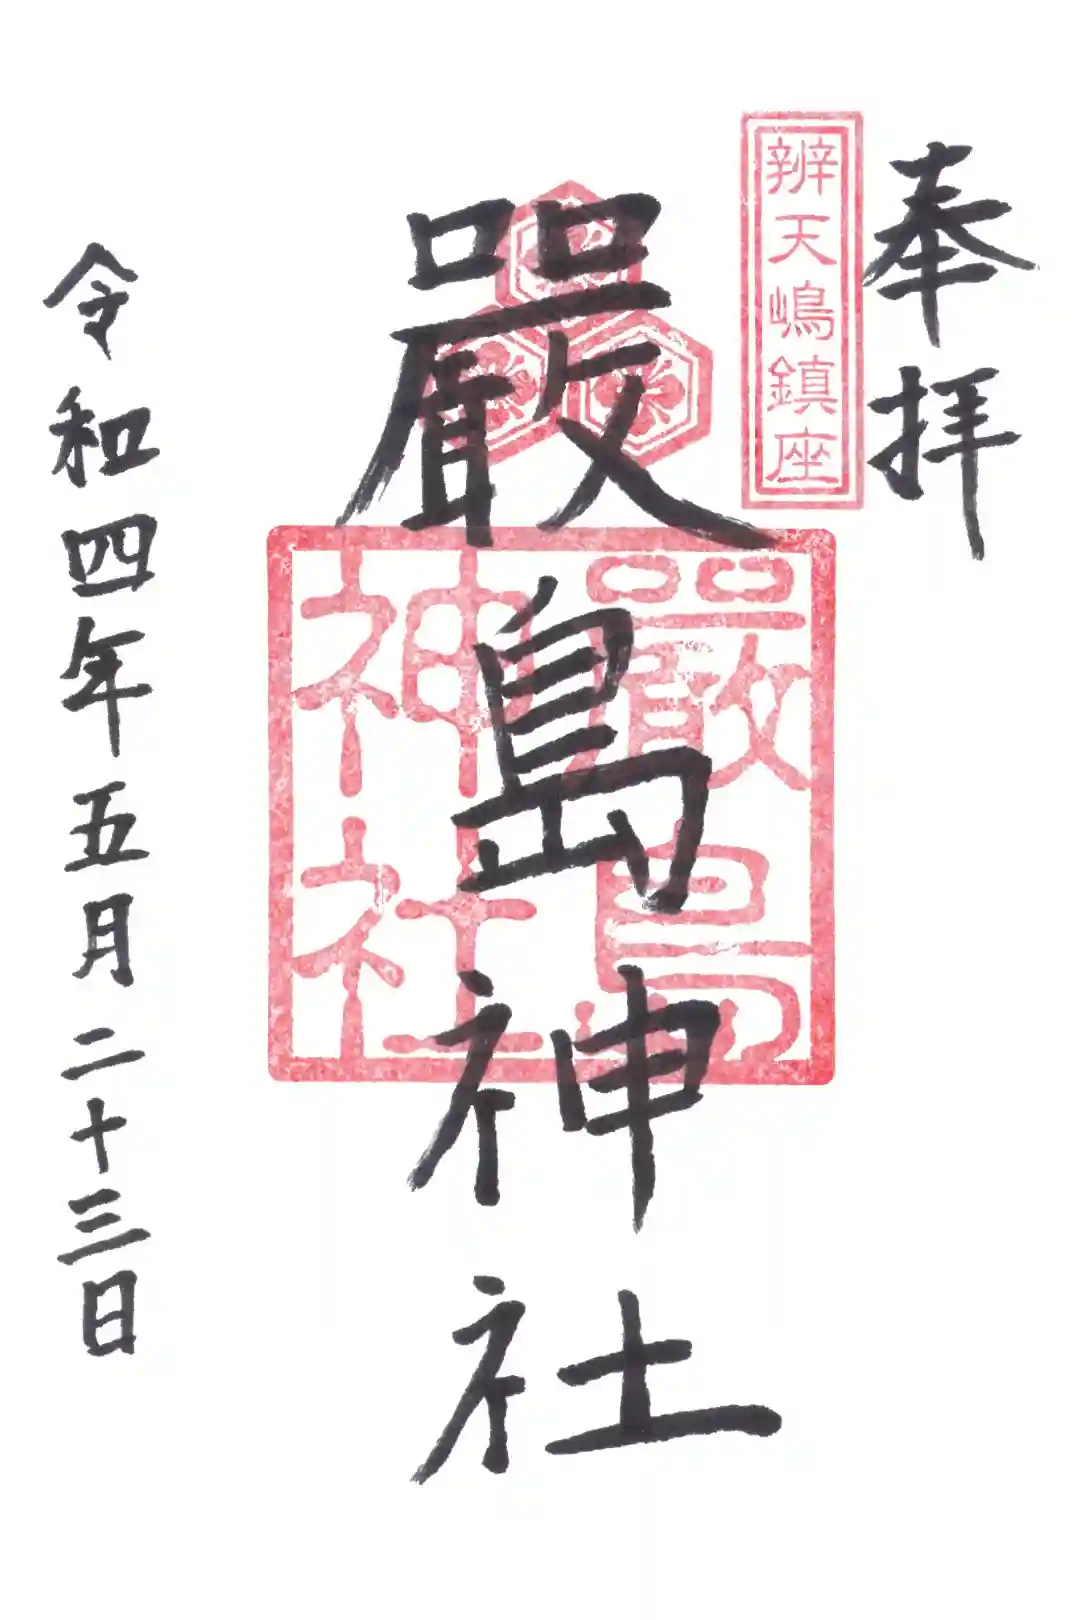 奉拝
辨天嶋鎮座
嚴島神社
嚴島
神社
令和四年五月二十三日